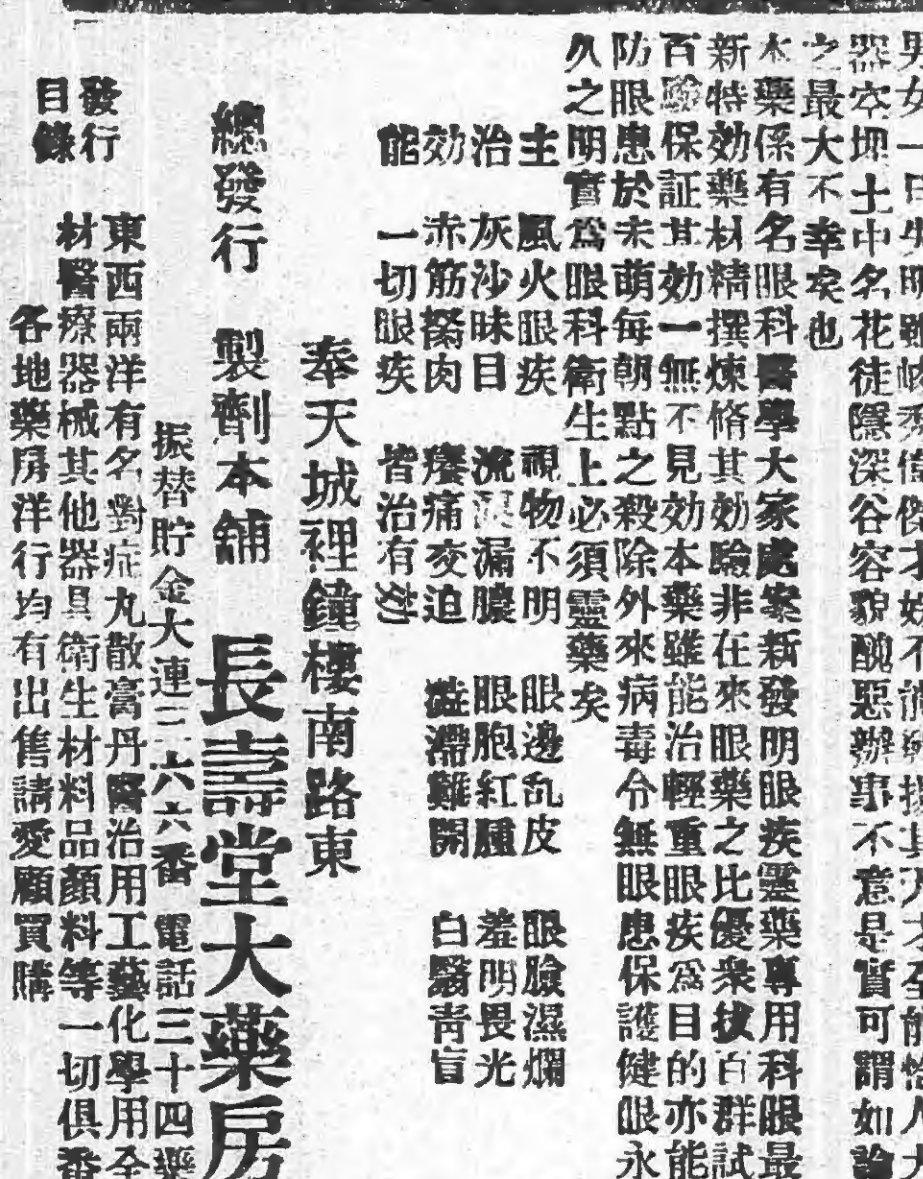 男女一旦失明雖
器空埋土中名花徒隱深谷容貌醜惡辦事不意是實可謂如論
之最大不幸矣也
本藥係有名眼科醫學大家處案新發明眼疾靈藥專用科眼最
新特効藥材精撰煉脩其効驗非在來眼藥之比優衆拔百群試
百驗保証其効一無不見効本藥雖能治輕重眼疾為目的亦能
防眼患於未萌每朝點之殺除外來病毒令無眼患保護健眼永
久之明實爲眼科衛生上必須靈藥矣
主 風火眼疾 視物不明 眼邊乱皮 眼臉濕爛
治 灰沙昧目 流淚漏膿 眼胞紅腫 羞明畏光
効 赤筋肉 癢痛交迫 澁滯難開 白翳靑盲
能 一切眼疾 皆治有効
奉天城裡鐘樓南路東
總發行 製劑本舖 長壽堂大藥房
振替貯金大連六六番 電話三十四
發行 東西兩洋有名對症丸散膏丹醫治用工藝化學用全
目錄 材醫療器械其他器具衛生材料品顏料等一切俱番
各地藥房洋行均有出售請愛顧買購